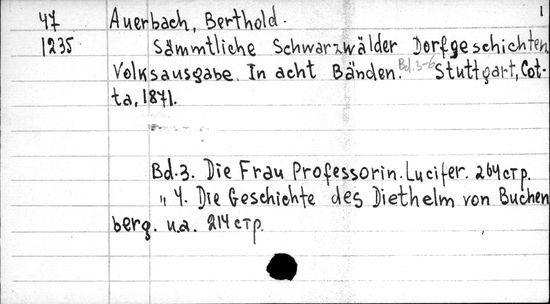 47 Auerbach, Berthold. 1
1235 Sämmtliche Schwarzwälder Dorfgeschichten
Volksausgabe. In acht Bänden. Bd.3-6 Stuttgart, Cot-
ta, 1871.
Bd.3. Die Frau Professorin. Lucifer. 264 стр.
„ 4. Die Geschichte des Diethelm von Buchen
berg. u.a. 214 стр.